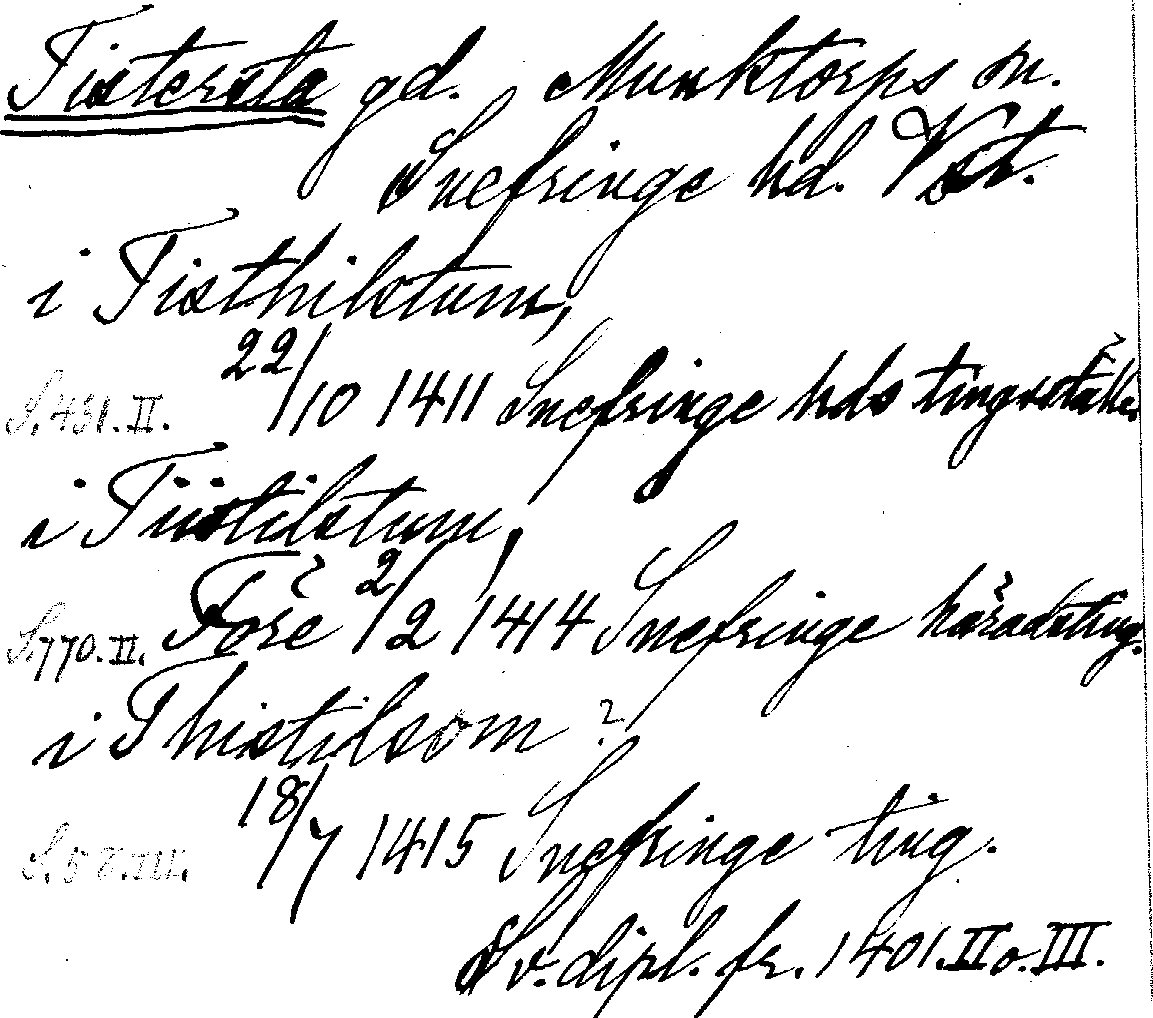 Tistersta gd. Munktorps sn.
Snefringe hd. Vst.
i Tisthilstum,
S. 431. II. 22/10 1411 Snefringe hds tingsställe.
i Tiistilstum,
S. 770. II. Före 2/2 1414 Snefringe häradsting.
i Thistilsom?
18/7 1415 Snefringe ting.
Sv. dipl. fr. 1401. II o. III.